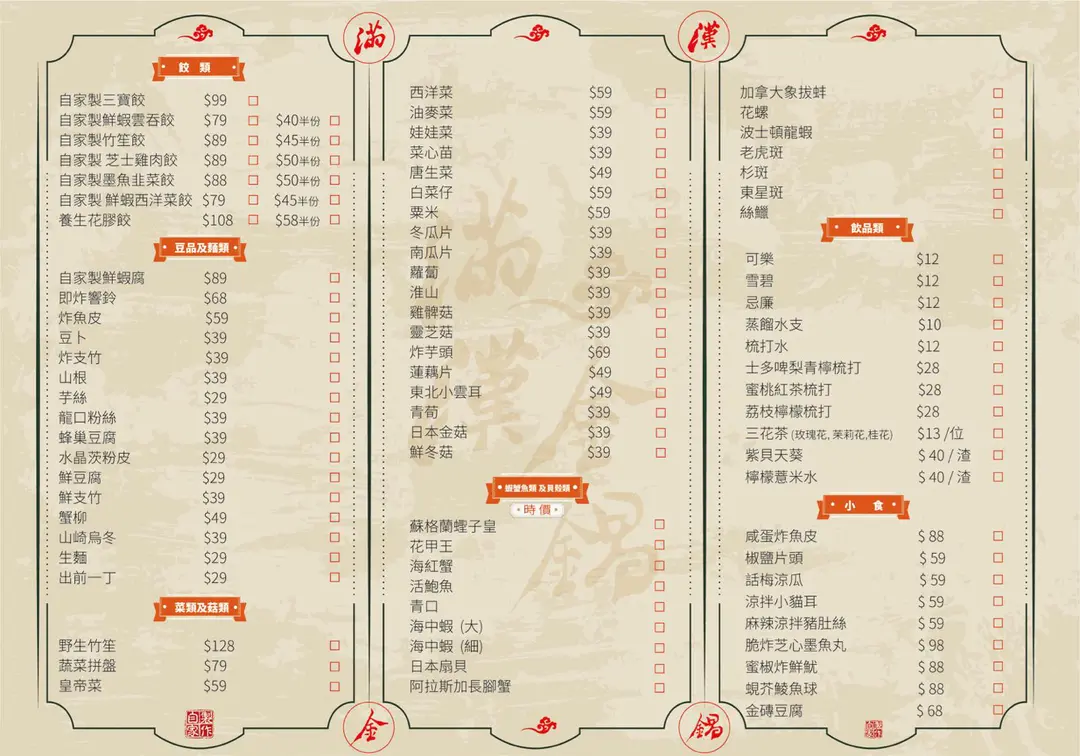 滿
漢
餃 類
自家製三寶餃 $99
自家製鮮蝦雲吞餃 $79 $40半份
自家製竹笙餃 $89 $45半份
自家製 芝士雞肉餃 $89 $50半份
自家製墨魚韭菜餃 $88 $50半份
自家製 鮮蝦西洋菜餃 $79 $45半份
養生花膠餃 $108 $58半份
豆品及麵類
自家製鮮蝦腐 $89
即炸響鈴 $68
炸魚皮 $59
豆卜 $39
炸支竹 $39
山根 $39
芋絲 $29
龍口粉絲 $39
蜂巢豆腐 $39
水晶茨粉皮 $29
鮮豆腐 $29
鮮支竹 $39
蟹柳 $49
山崎烏冬 $39
生麵 $29
出前一丁 $29
菜類及菇類
野生竹笙 $128
蔬菜拼盤 $79
皇帝菜 $59
西洋菜 $59
油麥菜 $59
娃娃菜 $39
菜心苗 $39
唐生菜 $49
白菜仔 $59
粟米 $59
冬瓜片 $39
南瓜片 $39
蘿蔔 $39
淮山 $39
雞髀菇 $39
靈芝菇 $39
炸芋頭 $69
蓮藕片 $49
東北小雲耳 $49
青荀 $39
日本金菇 $39
鮮冬菇 $39
蝦蟹魚類 及貝殼類
時價
蘇格蘭蟶子皇
花甲王
海紅蟹
活鮑魚
青口
海中蝦 (大)
海中蝦 (細)
日本扇貝
阿拉斯加長腳蟹
加拿大象拔蚌
花螺
波士頓龍蝦
老虎斑
杉斑
東星斑
絲鱲
飲品類
可樂 $12
雪碧 $12
忌廉 $12
蒸餾水支 $10
梳打水 $12
士多啤梨青檸梳打 $28
蜜桃紅茶梳打 $28
荔枝檸檬梳打 $28
三花茶 (玫瑰花, 茉莉花,桂花) $13 /位
紫貝天葵 $ 40 / 渣
檸檬薏米水 $ 40 / 渣
小 食
咸蛋炸魚皮 $ 88
椒鹽片頭 $ 59
話梅涼瓜 $ 59
涼拌小貓耳 $ 59
麻辣涼拌豬肚絲 $ 59
脆炸芝心墨魚丸 $ 98
蜜椒炸鮮魷 $ 88
蜆芥鯪魚球 $ 88
金磚豆腐 $ 68
滿漢金鍋
自家製作
金
鍋